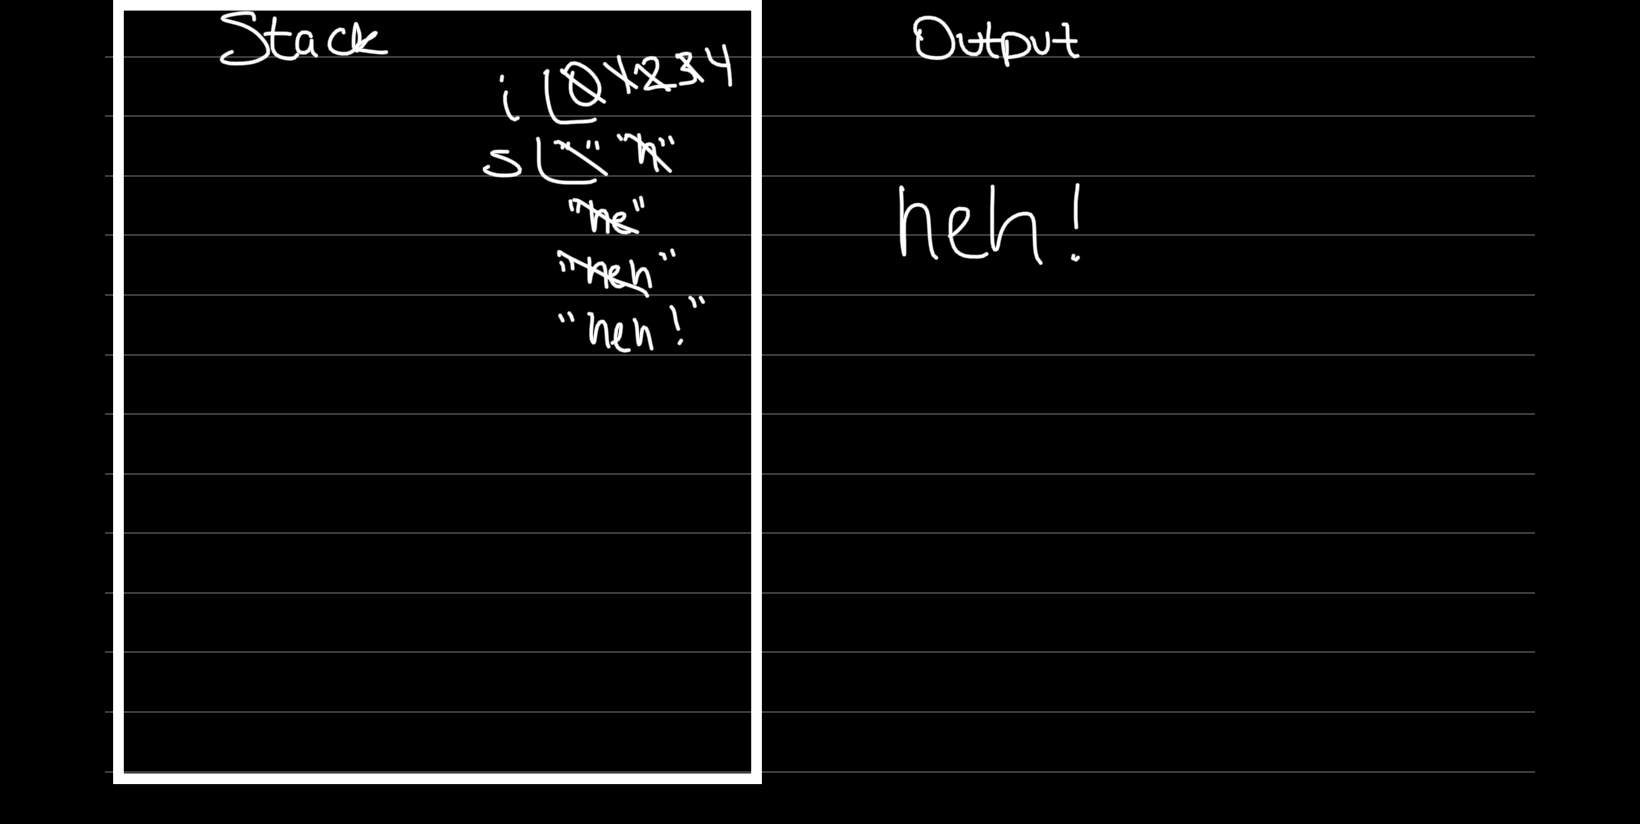 Stack
i 0 1 2 3 4
s "" "h"
"he"
"heh"
"heh!"
Output
heh!